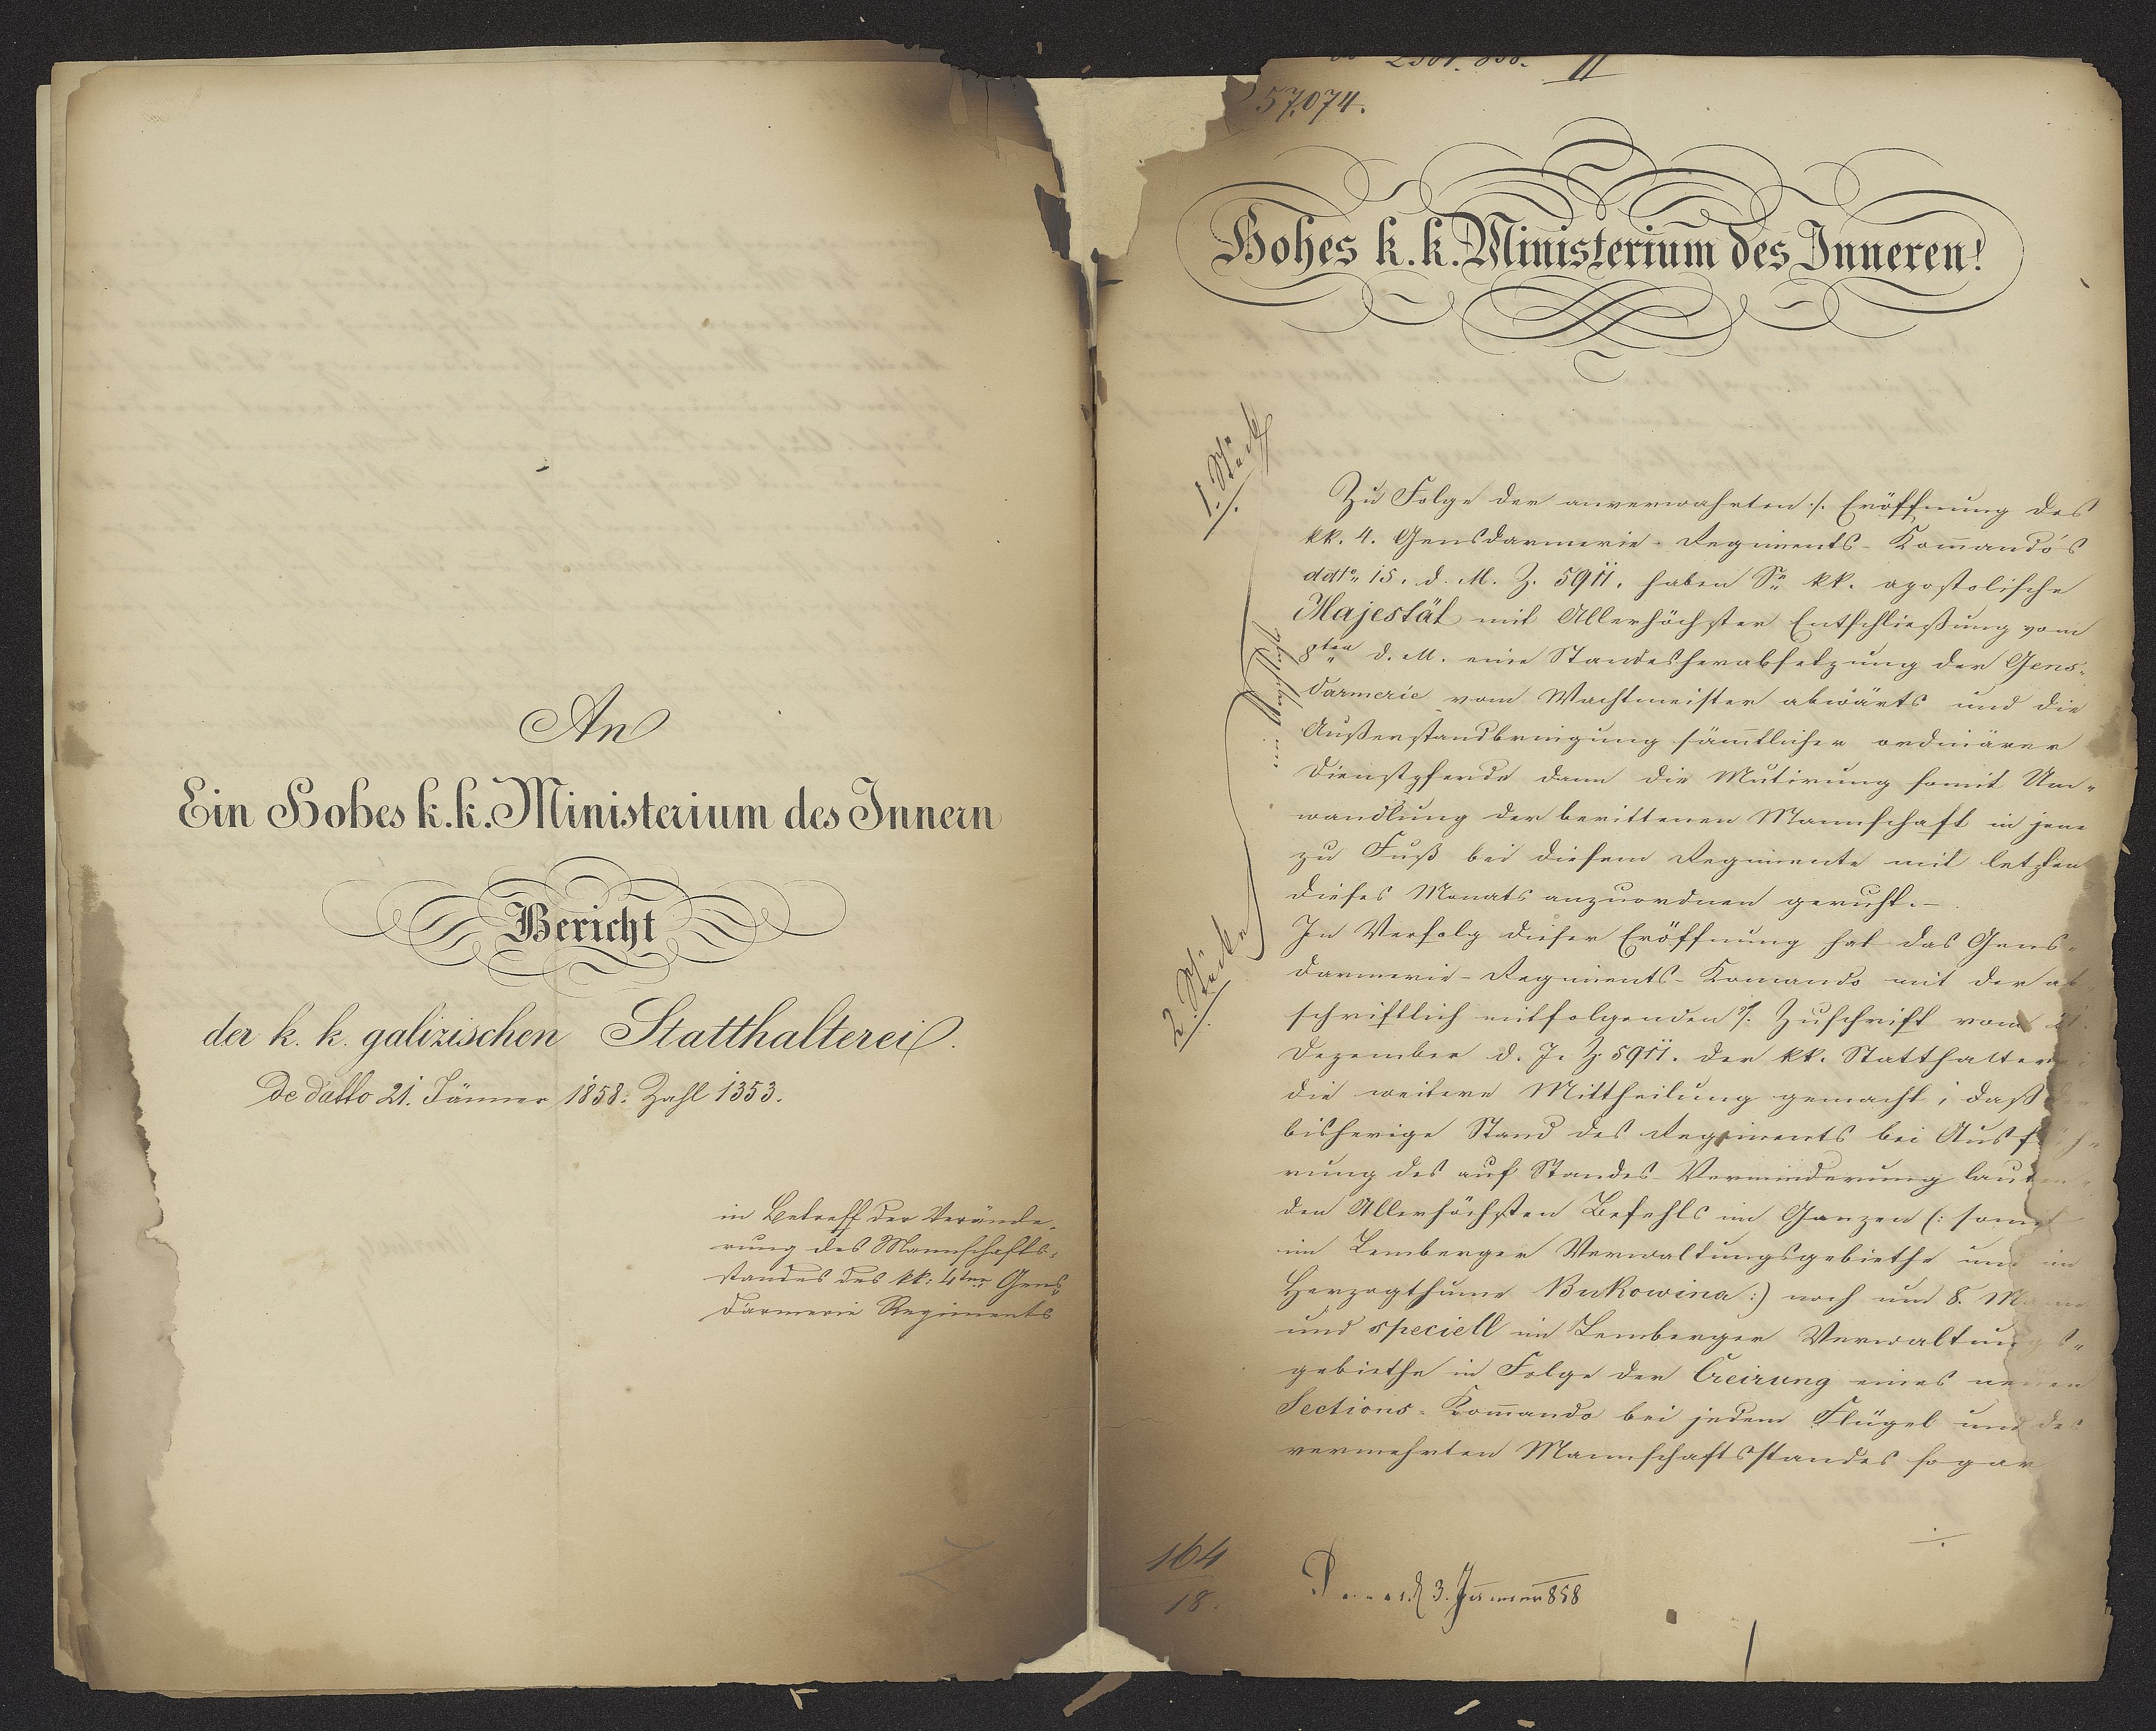 An
Ein Hohes k. k. Ministerium des Innern
Bericht
der k. k. galizischen Statthalterei.
De datto 21. Jänner 1858. Zahl 1353.
in Betreff der Verände-
rung des Mannschafts-
standes des kk: 4ten Gens-
darmerie Regiments
57,074.
Hohes k. k. Ministerium des Inneren!
1. Stück
Zu Folge der anverwahrten ./. Eröffnung des
kk. 4. Gensdarmerie-Regiments-Kom̅ando's
ddto 15. d. M. Z. 5911. haben Se kk. apostolische
Majestät mit Allerhöchster Entschließung vom
8ten d. M. eine Standesherabsetzung der Gens-
darmerie vom Wachtmeister abwärts und die
Außerstandbringung säm̅tlicher ordinärer
Dienstpferde dann die Mutirung somit Um-
wandlung der berittenen Mannschaft in jene
zu Fuß bei diesem Regimente mit letzten
dieses Monats anzuordnen geruht.-
2. Stücke
In Verfolg dieser Eröffnung hat das Gens-
darmerie-Regiments-Komando mit der ab
schriftlich mitfolgenden ./. Zuschrift vom 21.
Dezember d. J. Z. 5911. der kk. Statthalterei
die weitere Mittheilung gemacht, daß der
bisherige Stand des Regiments bei Ausfüh-
rung des auf Standes-Verminderung lauten-
den Allerhöchsten Befehls im Ganzen (: somit
im Lemberger Verwaltungsgebiethe und im
Herzogthume Bukowina :) noch um 8. Mann
und speciell im Lemberger Verwaltungs-
gebiethe in Folge der Creirung eines neuen
Sections-Kom̅ando bei jedem Flügel und des
vermehrten Mannschaftsstandes sogar
./.
164
18.
3. Jänner 858